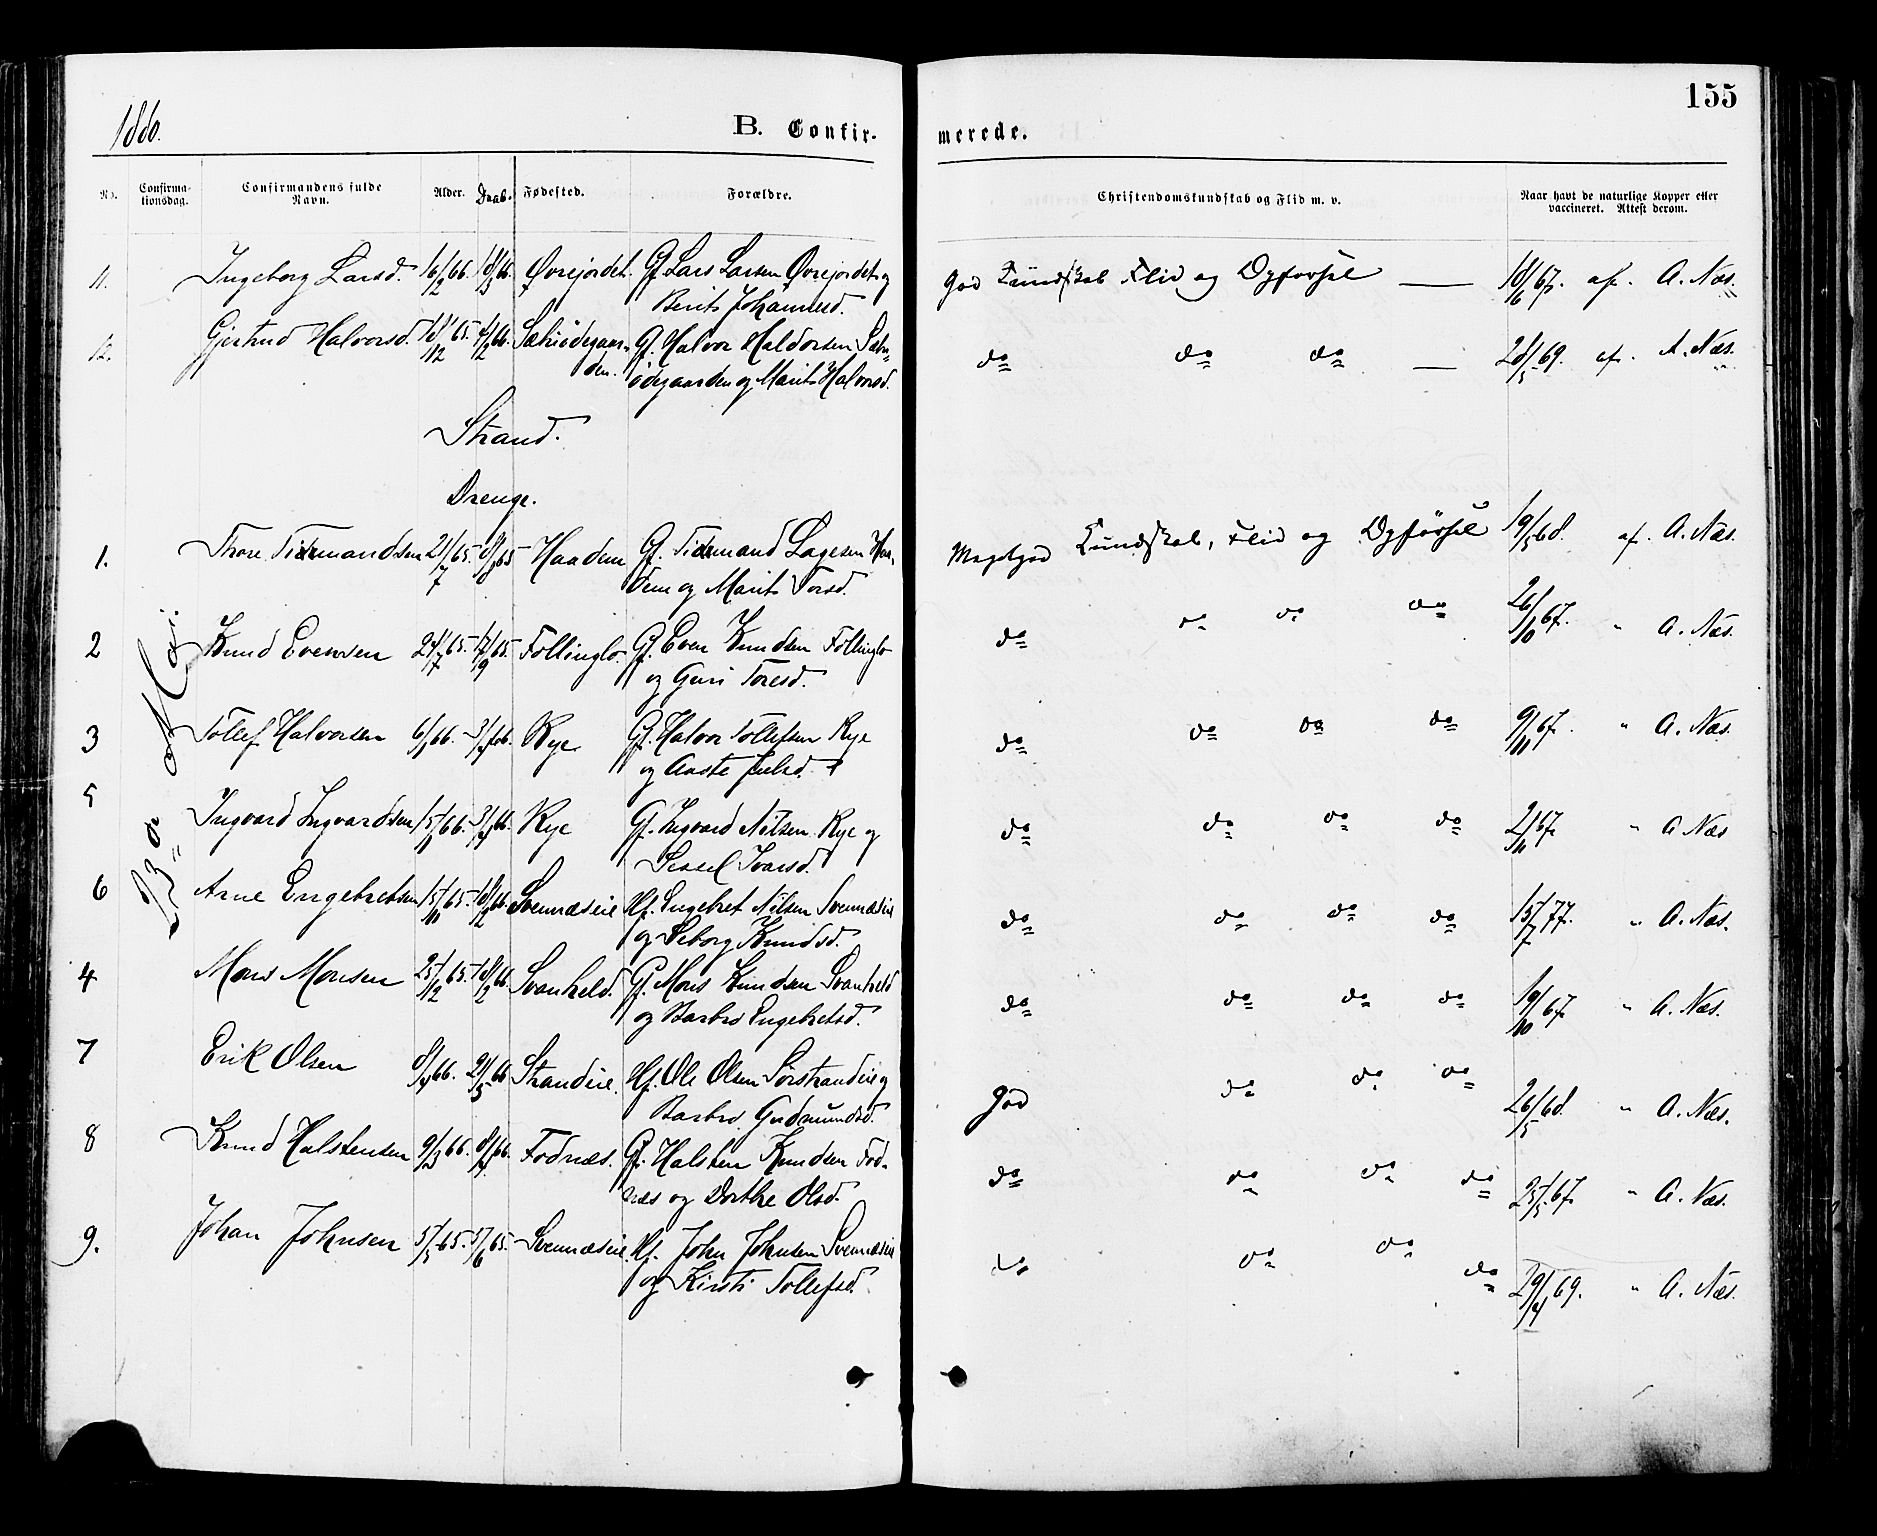 1880.
B. Confir-
merede.
155
No.
Confirma-
tionsdag.
Confirmandens fulde
Navn.
Alder.
Daab.
Fødested.
Forældre.
Christendomskundskab og Flid m. v.
Naar havt de naturlige Kopper eller
vaccineret. Attest derom.
11. Ingeborg Larsd. 16/2 66. 18/3 66. Øvrejordet. Gf. Lars Larsen Øvrejordet og
Berit Johannesd.
God Kundskab Flid og Opførsel — 18/6 67. af. A. Næs.
12. Gjertrud Halvorsd. 18/12 65. 4/2 66. Sæhrødegaar-
den. Gf. Halvor Haldorsen Sæhr-
ødegaarden og Marit Halvorsd.
do do do — 28/5 69. af. A. Næs.
Strand.
Drenge.
23de Mai.
1. Thore Tidemandsen 21/7 65. 8/8 65 Haadem Gf. Tidemand Lagesen Haa-
dem og Marit Torsd.
Megetgod Kundskab, Flid og Opførsel 19/5 68. af. A. Næs.
2 Knud Evensen 24/7 65. 17/9 65. Follinglo. Gf. Even Knudsen Follinglo
og Guri Toresd.
do do do do 26/10 67. " A. Næs.
3 Tollef Halvorsen 6/1 66. 31/4 66. Rye Gf. Halvor Tollefsen Rye
og Aaste Juelsd.
do do do do 9/11 67. " A. Næs.
5 Ingvard Ingvardsen 15/1 66. 31/4 66. Rye Gf. Ingvard Nilsen Rye og
Sissel Ivarsd.
do do do do 2/11 67. " A. Næs
6 Arne Engebretsen 15/11 65. 18/2 66. Svennæseie Hf. Engebret Nilsen Svennæseie
og Seborg Knudsd.
do do do do 15/7 77. " A. Næs.
4 Mons Monsen 25/12 65. 18/2 66. Svanheld. Gf. Mons Knudsen Svanheld
og Barbro Engebretsd.
do do do do 19/10 67. " A. Næs.
7 Erik Olsen 8/4 66. 21/5 66 Strandeie. Hf. Ole Olsen Sørstrandeie og
Barbro Gudmundsd.
God do do do 26/5 68. " A. Næs.
8 Knud Halstensen 9/3 66. 8/4 66. Fodnæs. Gf. Halsten Knudsen Fod-
næs og Dorthe Olsd.
do do do do 25/5 67. " A. Næs.
9. Johan Johnsen 5/5 65. 5/6 65. Svennæseie. Hf. John Johnsen Svennæseie
og Kirsti Tollefsd.
do do do do 29/4 69. " A. Næs.